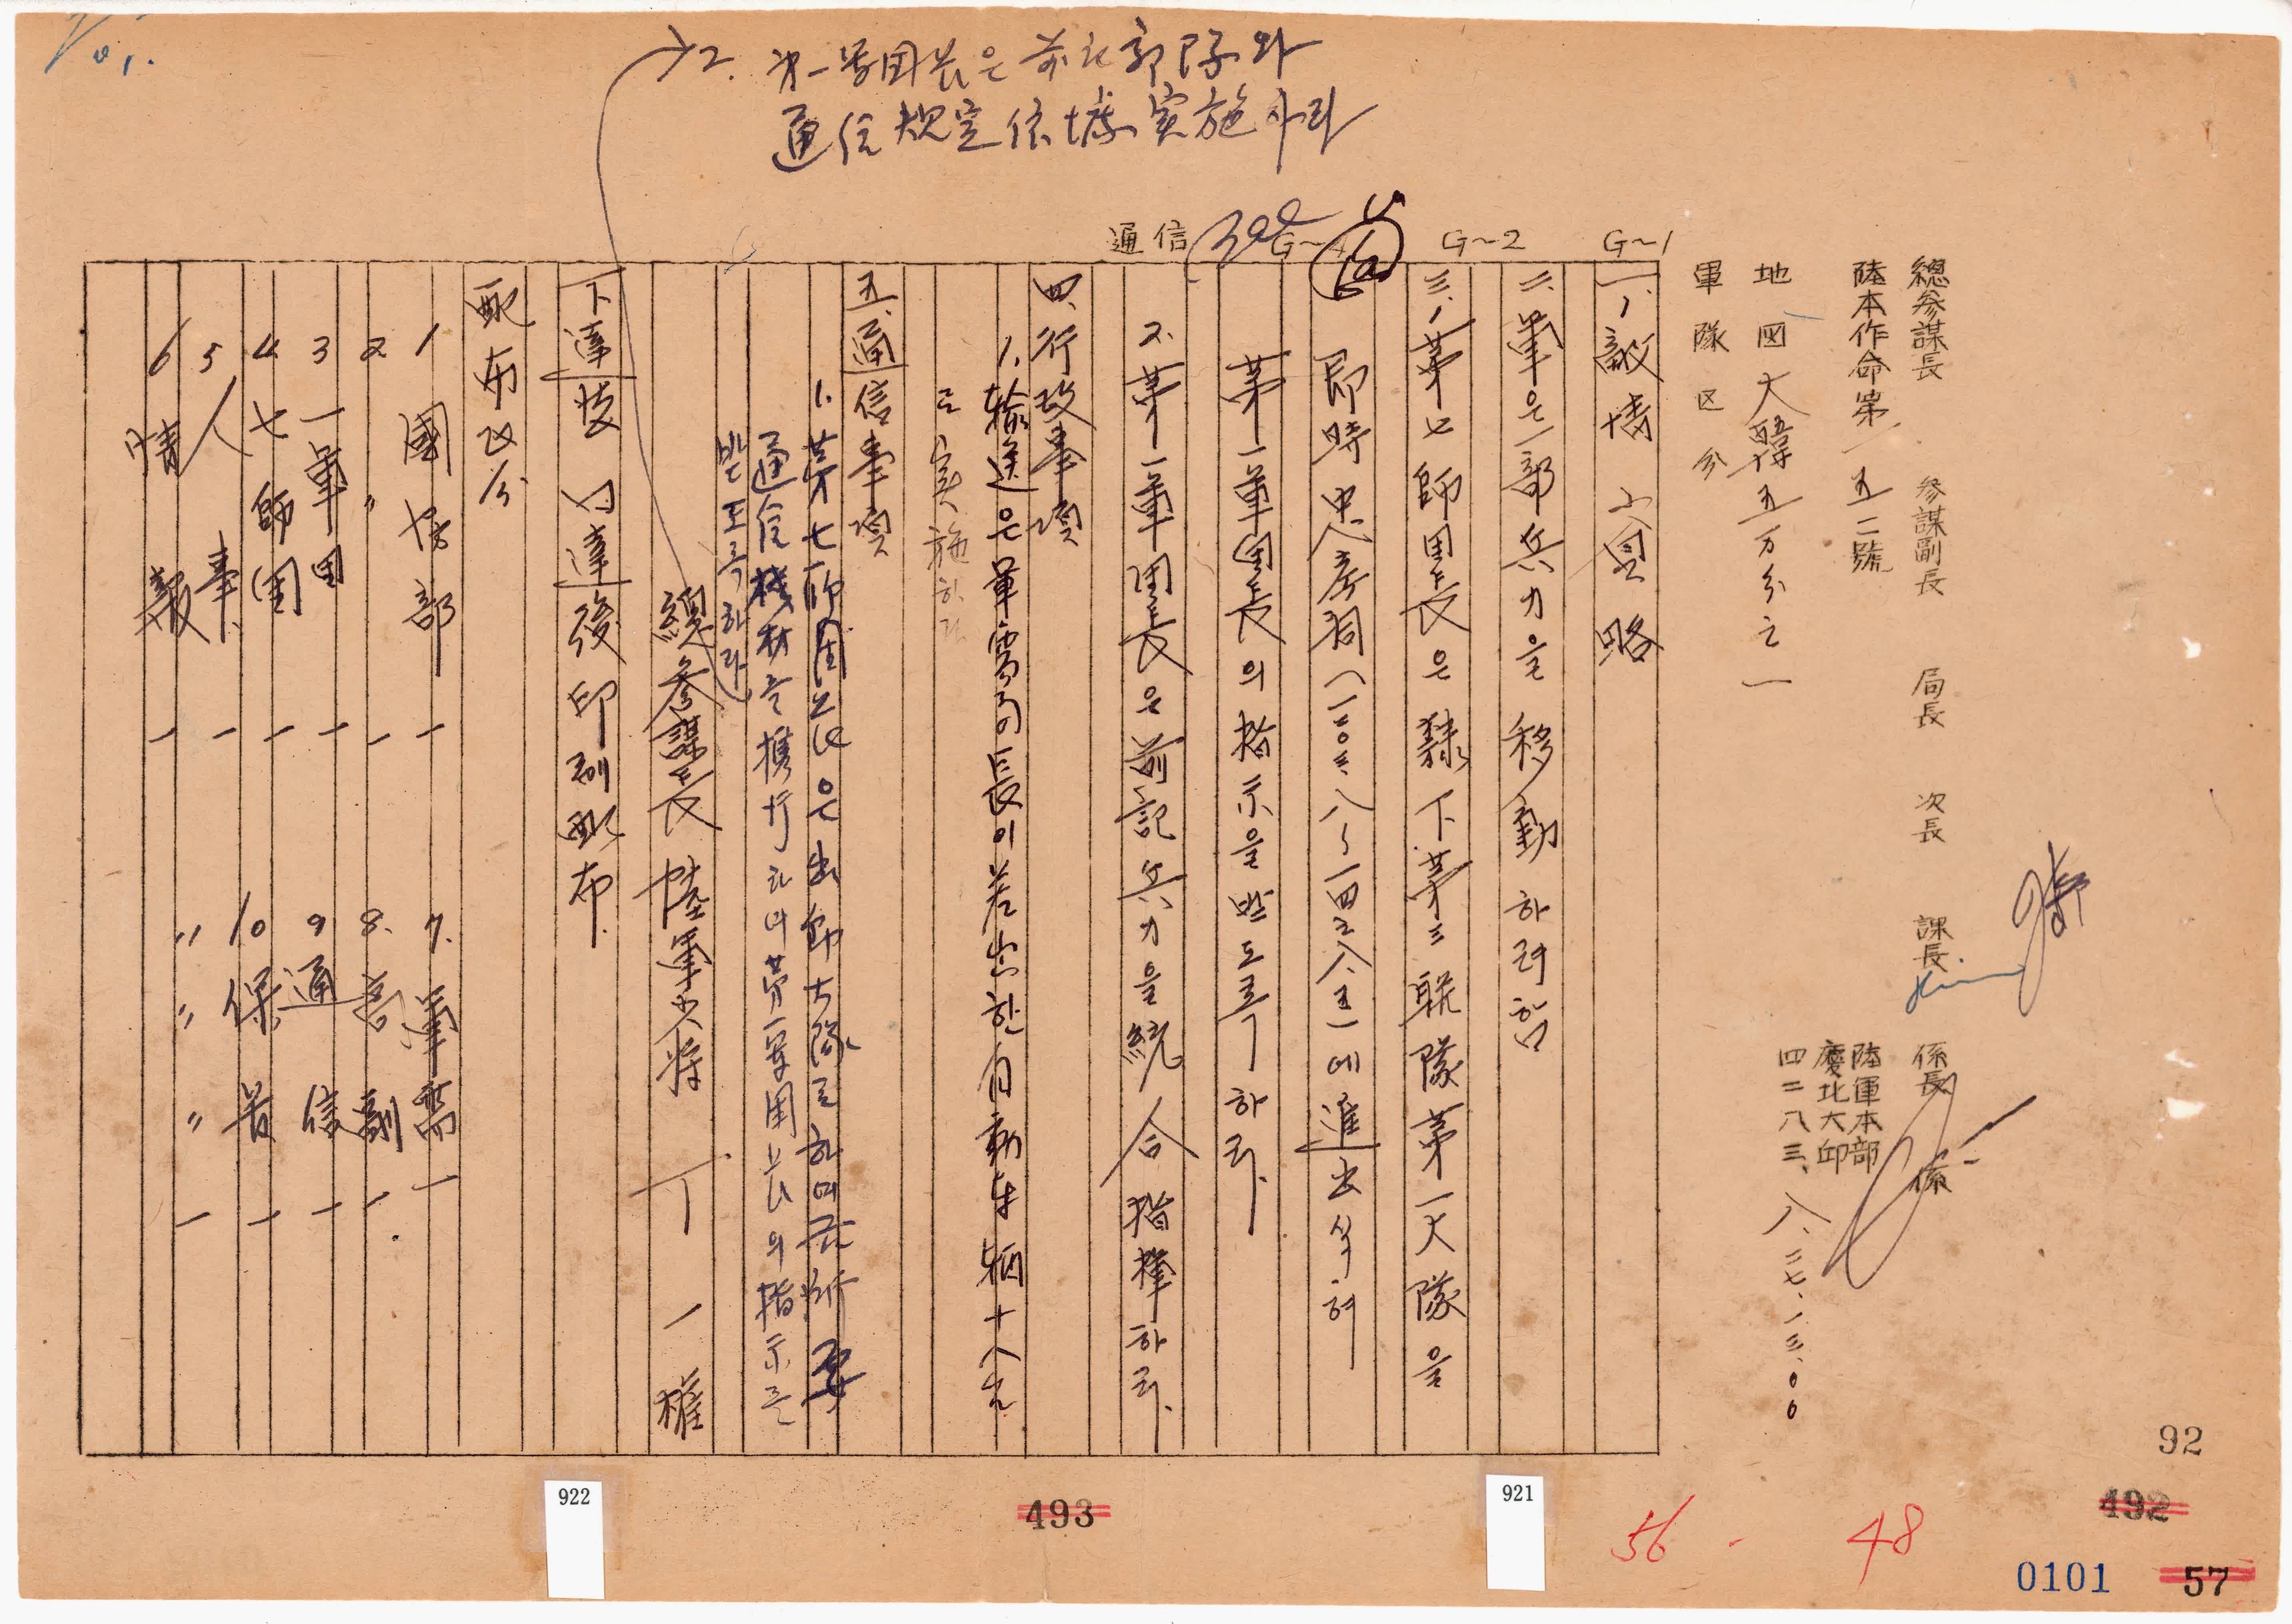 總參謀長 參謀副長 局長 次長 課長 係長 係
陸本作命第一五二號
陸軍本部
慶北大邱
四二八三、八、二七、一三、00
地図 大韓五万分之一
軍隊区分
G~1
G~2
通信
一、1、敵情 に 略
二、軍은 一部兵力을 移動하려함
三、1、第七師団長은 隷下第三聯隊第一大隊을
即時 忠 房洞(一二0三、八~一四 八、五)에 進出 식혀
第一軍団長의 指示을 받도록 하라.
2、第一軍団長은 前記兵力을 統合指揮하라.
四、行政事項
1、輸送은 軍需局長이 差出한 自動車輛十八台
로 実施하라
五、通信事項
1、第七師団長은 出動大隊로 하여금 所要
通信機材를 携行하며 第一軍団長의 指示를
받도록 하라
2. 第一軍団長은 前記部隊와
通信規定依據実施하라
總參謀長 陸軍少將 丁一權
下達法 下達後印刷配布
配布区分
1 國防部 一
2 〃 一
3 一軍団 一
4 七師団 一
5 人事 一
6 情報 一
7. 軍需 一
8. 高副 一
9 通信 一
10 保 一
〃 〃 〃 一
922
493
921
56 - 48
92
492
0101
57